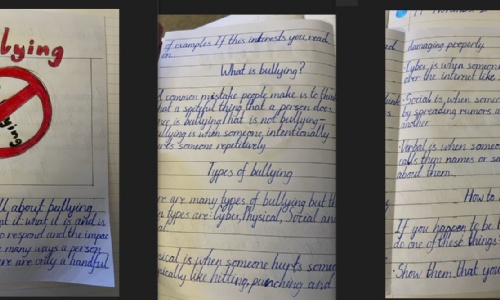 lying
ying
ll about bullying
t it what it is and is
o respond and the impac
many ways a person
ere are only a handful
of examples If this interests you read
on
What is bullying?
common mistake people make is to think
hat a spiteful thing that a person does
is bullying that is not bullying-
llying is when someone intentionally
someone repetitively
Types of bullying
re are many types of bullying but the
n types are: Cyber, Physical, Social and
al.
ical is when someone hurts someo
ysically like hitting, punching and
damaging property
Cyber is when someone
over the internet like
Social is when someo
by spreading rumors a
another
Verbal is when someo
calls them names or sa
about them.
How to
If you happen to be b
do one of these things
Show them that you